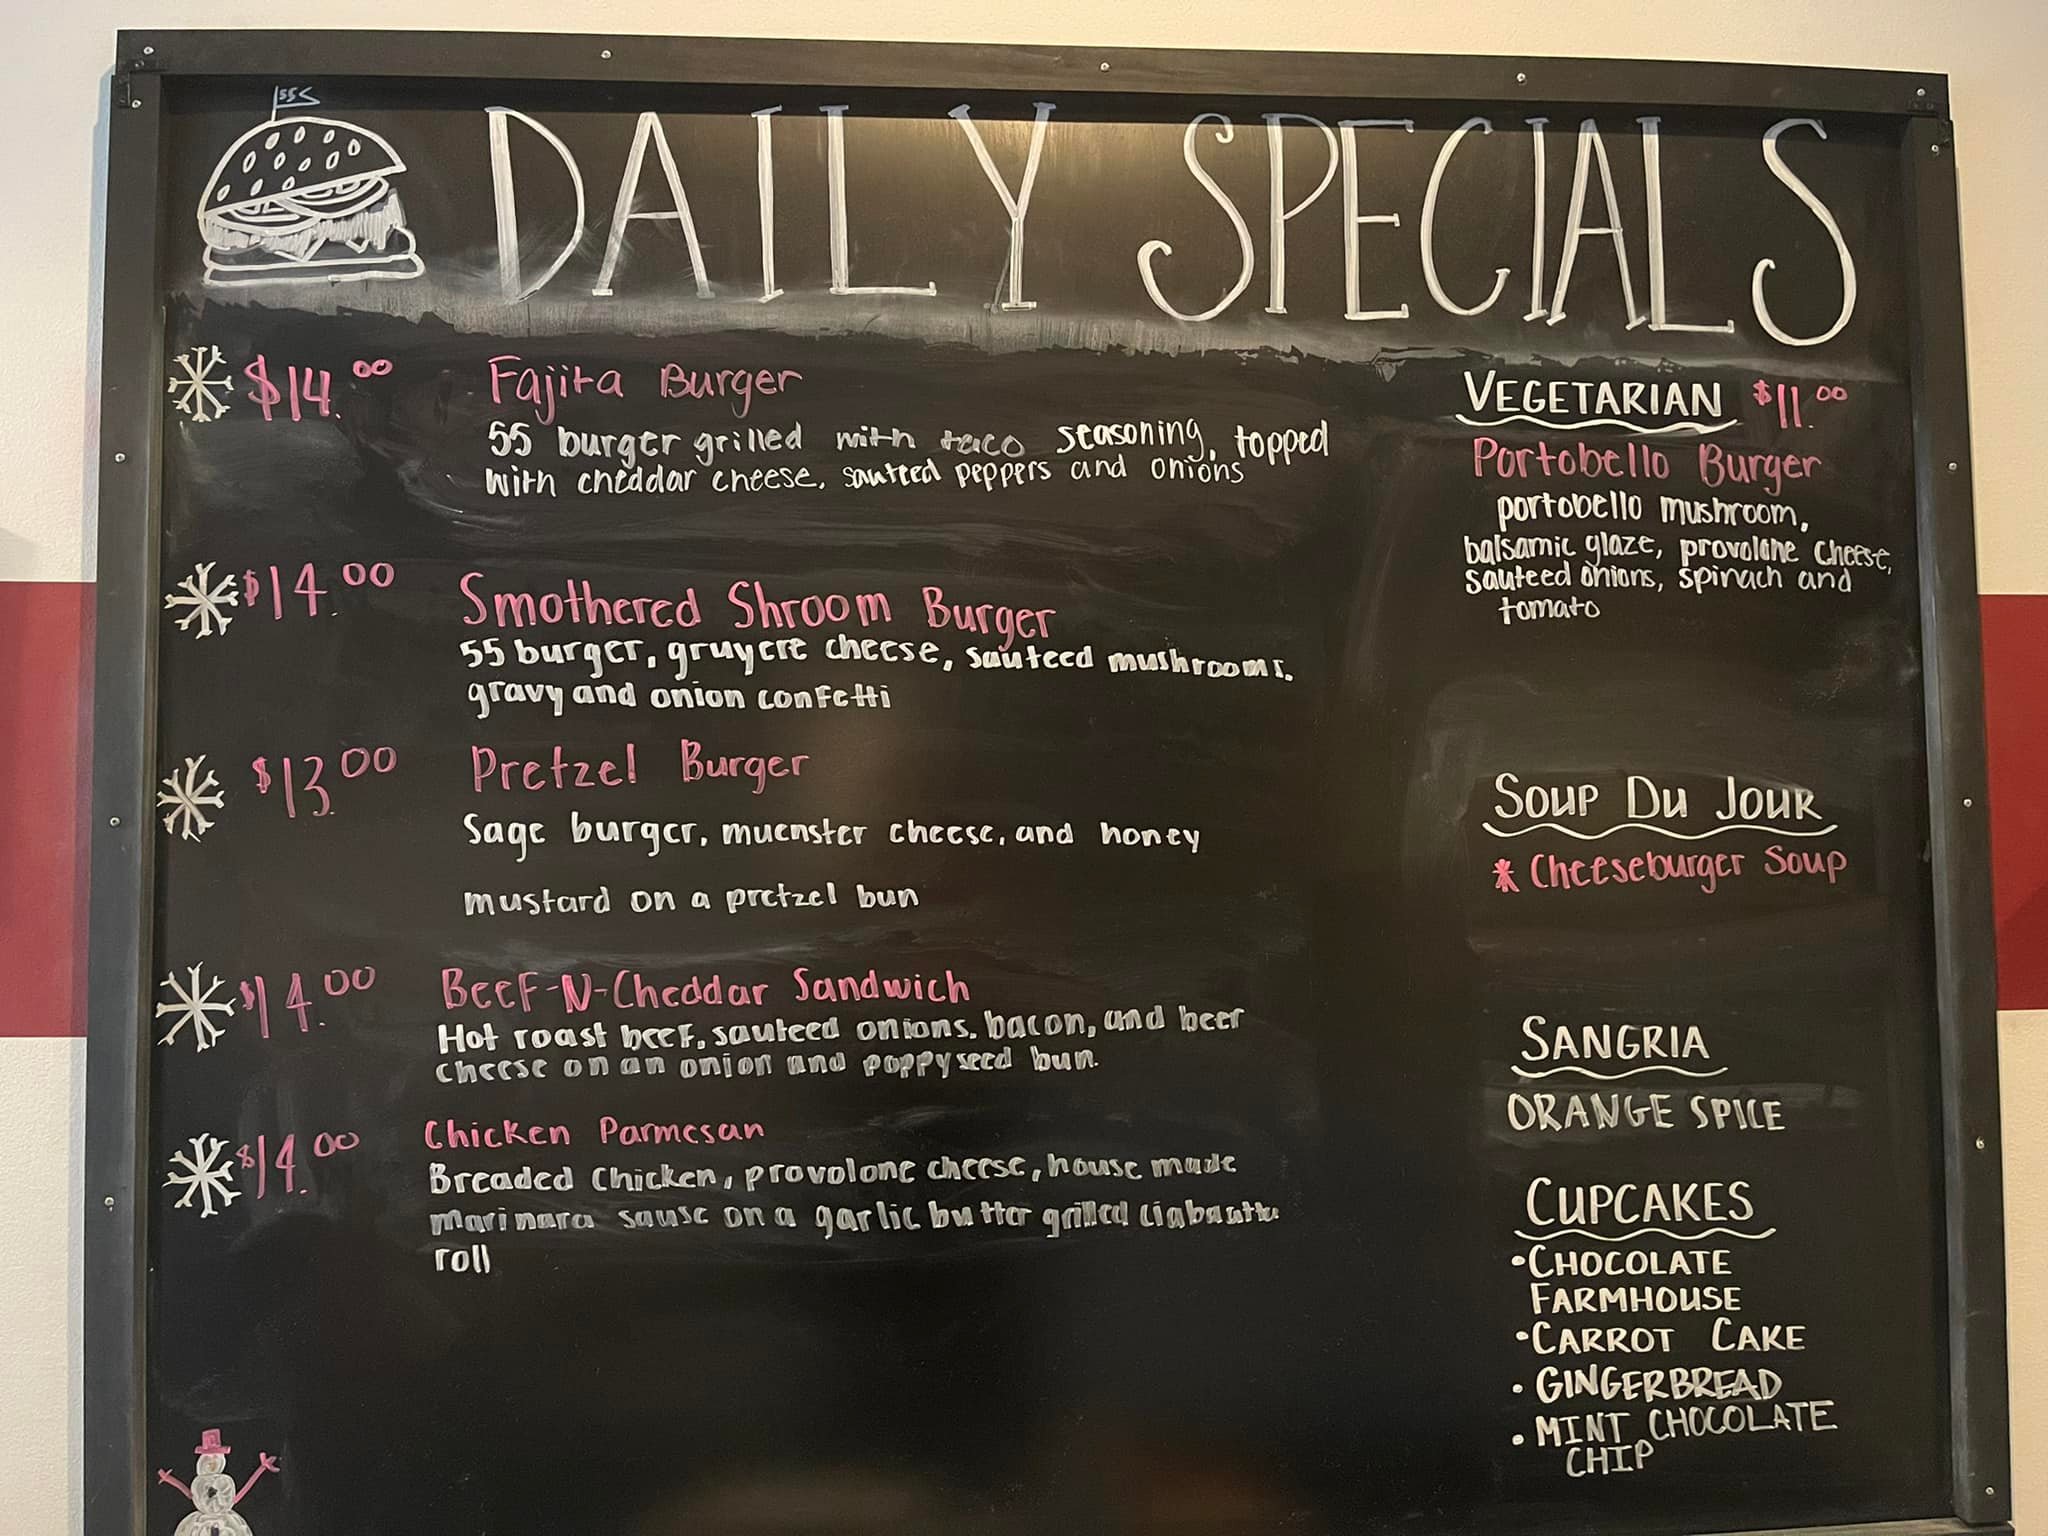 55
DAILY SPECIALS
$14.00 Fajita Burger
55 burger grilled with taco seasoning, topped
with cheddar cheese, sauteed peppers and onions
$14.00 Smothered Shroom Burger
55 burger, gruyere cheese, sauteed mushrooms,
gravy and onion confetti
$13.00 Pretzel Burger
Sage burger, muenster cheese, and honey
mustard on a pretzel bun
$14.00 Beef-N-Cheddar Sandwich
Hot roast beef, sauteed onions, bacon, and beer
cheese on an onion and poppyseed bun.
$14.00 Chicken Parmesan
Breaded chicken, provolone cheese, house made
marinara sause on a garlic butter grilled
roll
VEGETARIAN $11.00
Portobello Burger
portobello mushroom,
balsamic glaze, provolone cheese,
sauteed onions, spinach and
tomato
SOUP DU JOUR
* Cheeseburger Soup
SANGRIA
ORANGE SPICE
CUPCAKES
• CHOCOLATE
FARMHOUSE
• CARROT CAKE
• GINGERBREAD
• MINT CHOCOLATE
CHIP